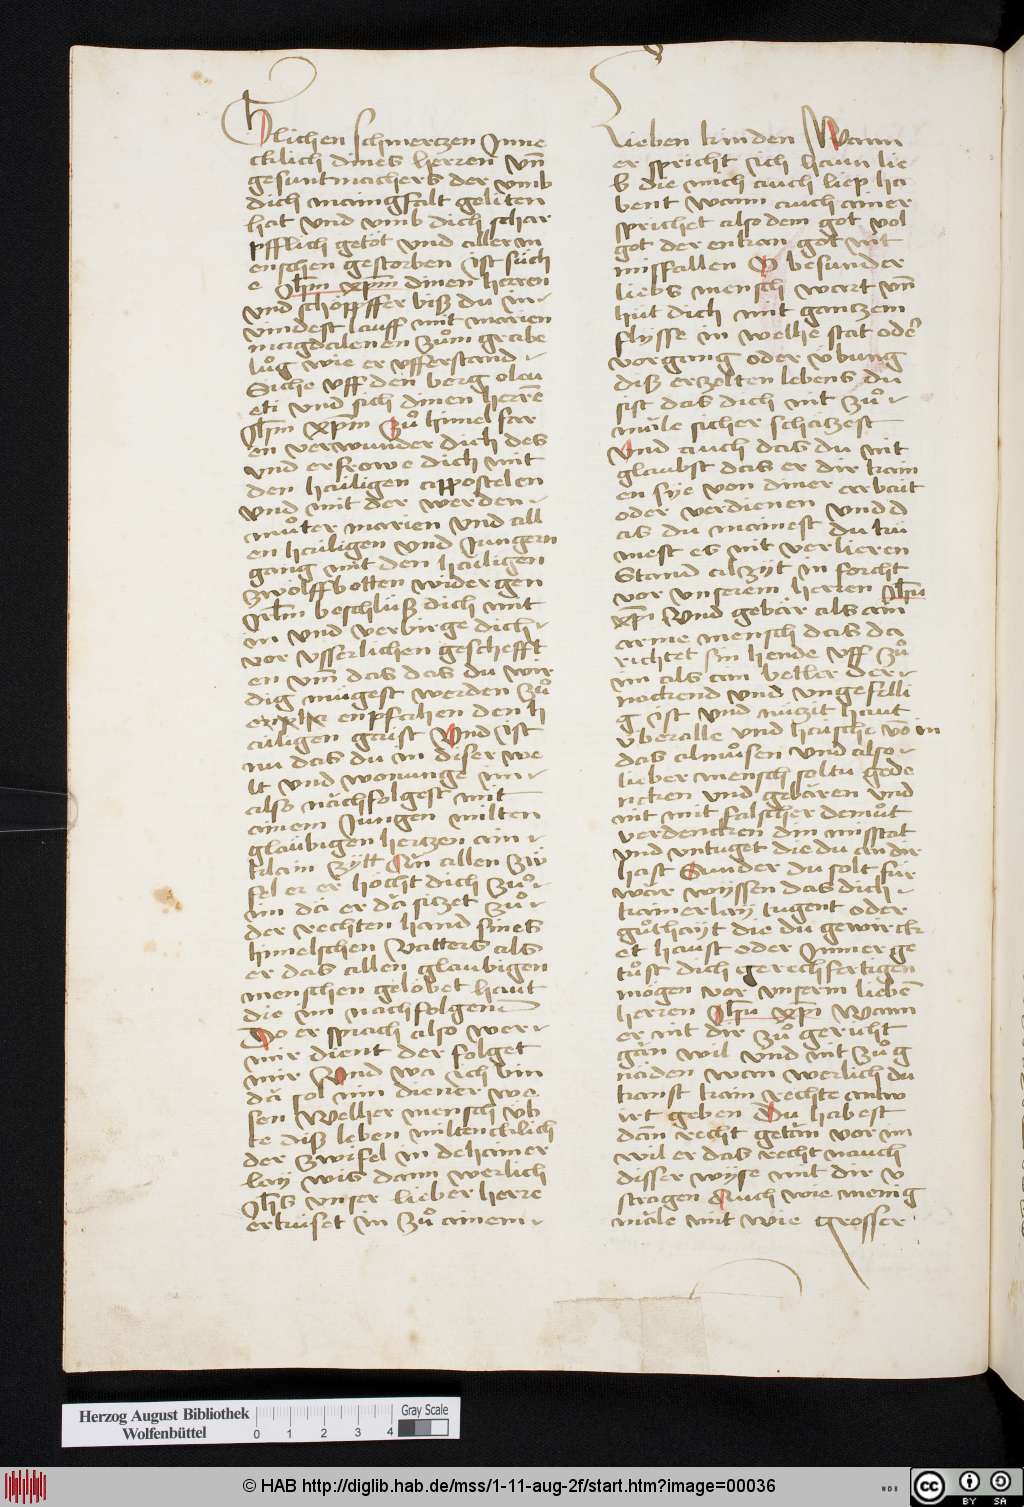 hlichen schmertzen Inne
cklich dines herren vn̄
gesuntmachers der vmb
dich mainigfalt geliten
hat vnd vmb dich schar
pfflich getöt vnd aller m
enschen gestorben ist süch
e Jh̄m xp̄m dinen herren
vnd schöpffer biß du in
vindest lauff mit marien
magdalenen zuͦm grabe
luͦg wie er vfferstand
Siche vff den berg oleu
eti vnd sich dinen herrē
Jh̄m xp̄m Zuͦ himel far
en verwunder dich des
vnd erfrowe dich mit
den hailigen appostelen
vnd mit der werden
muͦter marien vnd all
en hailigen vnd Jungern
gang mit den hailigen
zwölffbotten widergen
Jrlm beschlüß dich mit
in vnd verbirge dich
vor vsserlichen geschefft
en vm̄ das das du wir
dig mügest werden zuͦ
enpfahen den h
ailigen gaist Vnd ist
nu das du in diser we
lt vnd wonunge im
also nachfolgest mit
ainem Jungen milten
glaubigen hertzen ain
klain zytt An allen zwi
fel er er höcht dich zuͦ
im da er da sitzet zuͦ
der rechten hand sines
himelschen Vatters als
er das allen glaubigen
menschen gelobet haut
die im nachfolgen
Do er sprach also wer
mir dient der folget
mir Vnd wa ich bin
da sol min diener we
sen Welher mensch üb
te diß leben miltencklich
der zwifel in dehainer
lay wis dann werlich
Jh̄s vnser lieber herre
erkuset in zuͦ ainem
Lieben kinden Wann
er spricht ich haun lie
b die mich auch liep ha
bent wann auch ainer
sprichet also dem got wol
got der enkan got nit
missfallen O besunder
liebs mensch wart vn̄
hüt dich mit gantzem
flysse in welhe stat oder
vorgang oder übung
diß erzelten lebens du
sist das dich nit zuͦ
male sicher schatzest
Vnd auch das du nit
glaubst das er dir kain
en sye von diner arbait
oder verdienen vnd d
as du mainest du kü
mest es nit verlieren
Stand alzyt in forcht
vor vnserem herren Jh̄u
xp̄i vnd gebar als ain
arme mensch das da
richtet sin hende vff zuͦ
im als ain betler der
nackend vnd vngefelli
g ist vnd nützit haut
vberalle vnd haische vō im
das almuͦsen vnd also
lieber mensch soltu gede
ncken vnd gebaren vnd
nit mit falscher demuͦt
verdencken din misstat
vnd vntuget die du an dir
hast Sunder du solt für
war wyssen das dich
kainerlay tugent oder
guͦthayt die du gewirck
et haust oder Jmmer ge
tuͦst dich gerechfertigen
mögen vor vnserm liebē
herren Jh̄u xp̄i Wann
er nit dir zuͦ geruht
gan wil vnd nit zuͦ g
naden wan werlich du
kanst kain rechte antw
irt geben Du habest
dañ recht getan vor im
wil er das recht nauch
disser wyse mit dir v
stragen Auch wie menig
male mit wie grosser
Herzog August Bibliothek
Wolfenbüttel
0 1 2 3 4
Gray Scale
© HAB http://diglib.hab.de/mss/1-11-aug-2f/start.htm?image=00036
WDB
cc BY SA